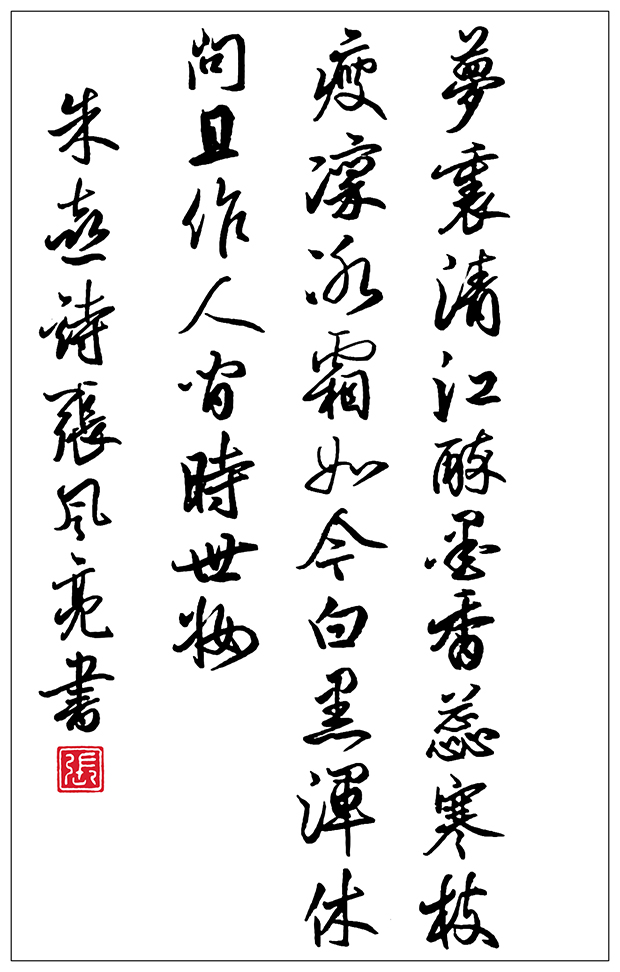 夢裏清江醉墨香蕊寒枝
瘦凜冰霜如今白黑渾休
問且作人间時世妝
朱熹詩張风亮書
張